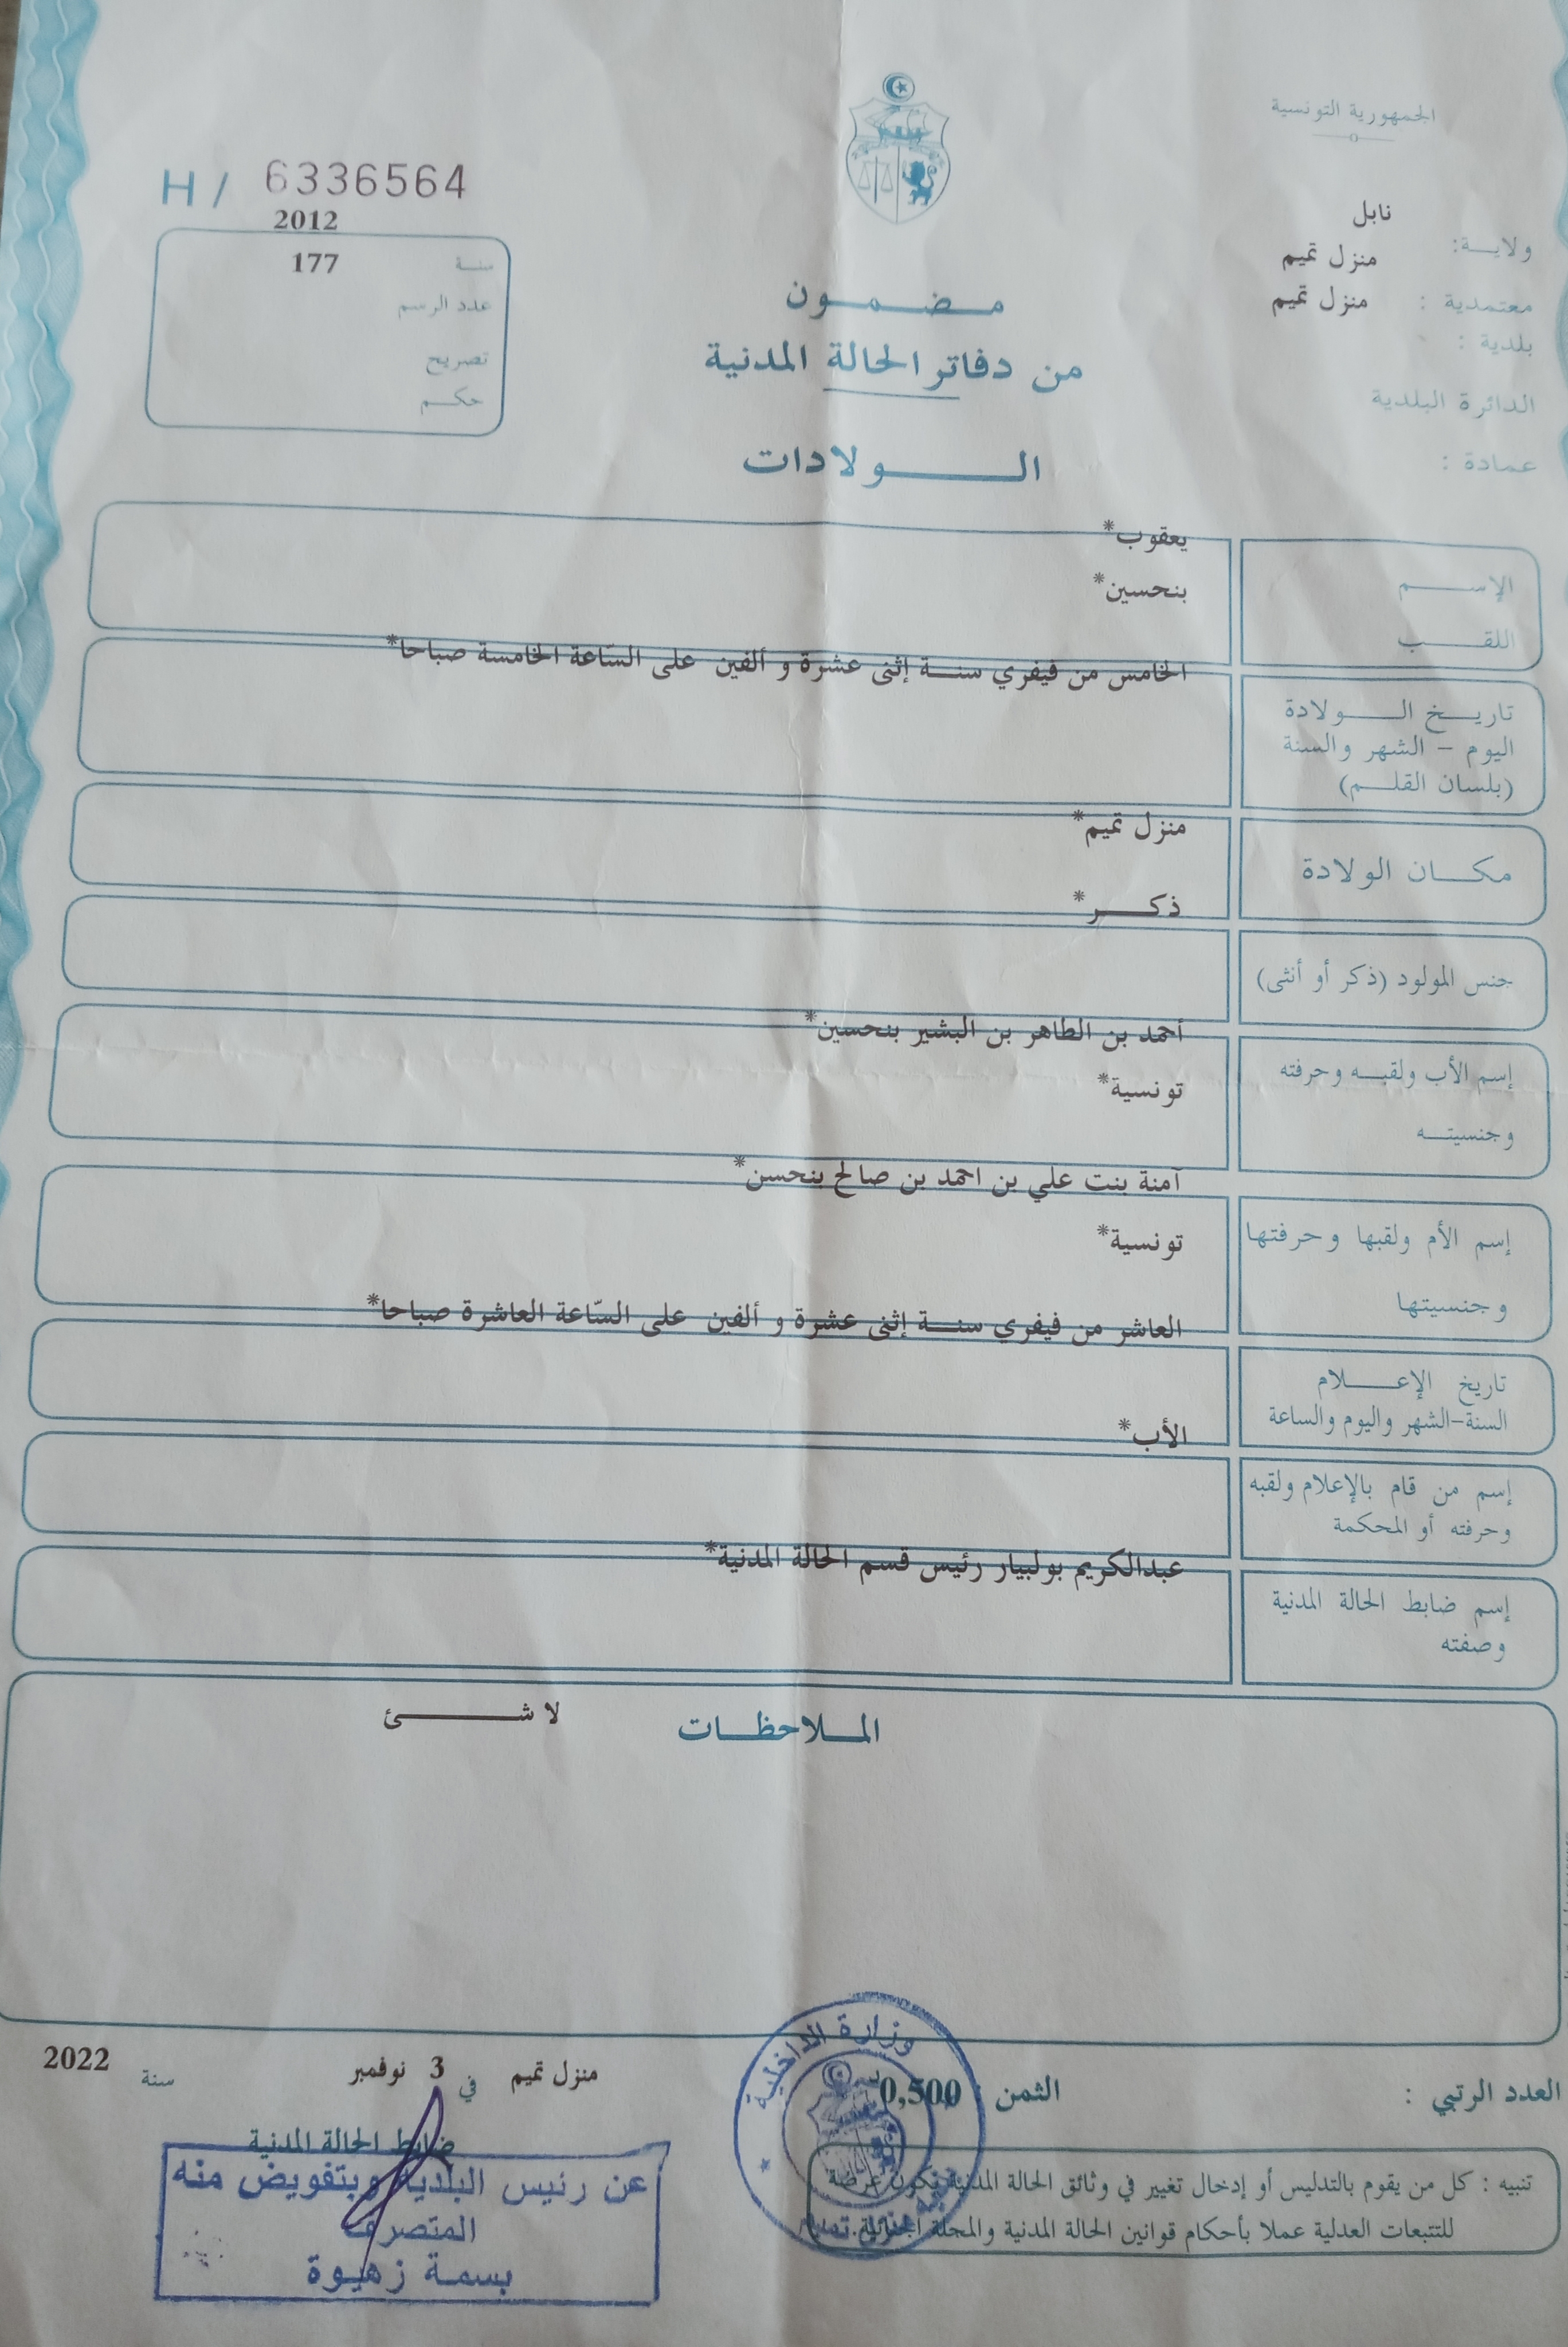 الجمهورية التونسية
H / 6336564
ولاية: نابل
معتمدية : منزل تميم
بلدية : منزل تميم
الدائرة البلدية
عمادة :
2012
سنة 177
عدد الرسم
تصريح
حكم
مضمون
من دفاتر الحالة المدنية
الولادات
الإسم يعقوب*
اللقب بنحسين*
تاريخ الولادة الخامس من فيفري سنة إثنى عشرة و ألفين على السّاعة الخامسة صباحا*
اليوم - الشهر والسنة
(بلسان القلم)
مكان الولادة منزل تميم*
جنس المولود (ذكر أو أنثى) ذكر*
إسم الأب ولقبه وحرفته أحمد بن الطاهر بن البشير بنحسين*
وجنسيته تونسية*
إسم الأم ولقبها وحرفتها آمنة بنت علي بن احمد بن صالح بنحسن*
وجنسيتها تونسية*
تاريخ الإعلام العاشر من فيفري سنة إثنى عشرة و ألفين على السّاعة العاشرة صباحا*
السنة-الشهر واليوم والساعة
إسم من قام بالإعلام ولقبه الأب*
وحرفته أو المحكمة
إسم ضابط الحالة المدنية عبدالكريم بولبيار رئيس قسم الحالة المدنية*
وصفته
الملاحظات لا شئ
العدد الرتبي :
الثمن : 0,500
منزل تميم في 3 نوفمبر سنة 2022
ضابط الحالة المدنية
وزارة الداخلية
عن رئيس البلدية وبتفويض منه
المتصرف
بسمة زهيوة
تنبيه : كل من يقوم بالتدليس أو إدخال تغيير في وثائق الحالة المدنية يكون عرضة
للتتبعات العدلية عملا بأحكام قوانين الحالة المدنية والمجلة الجنائية.